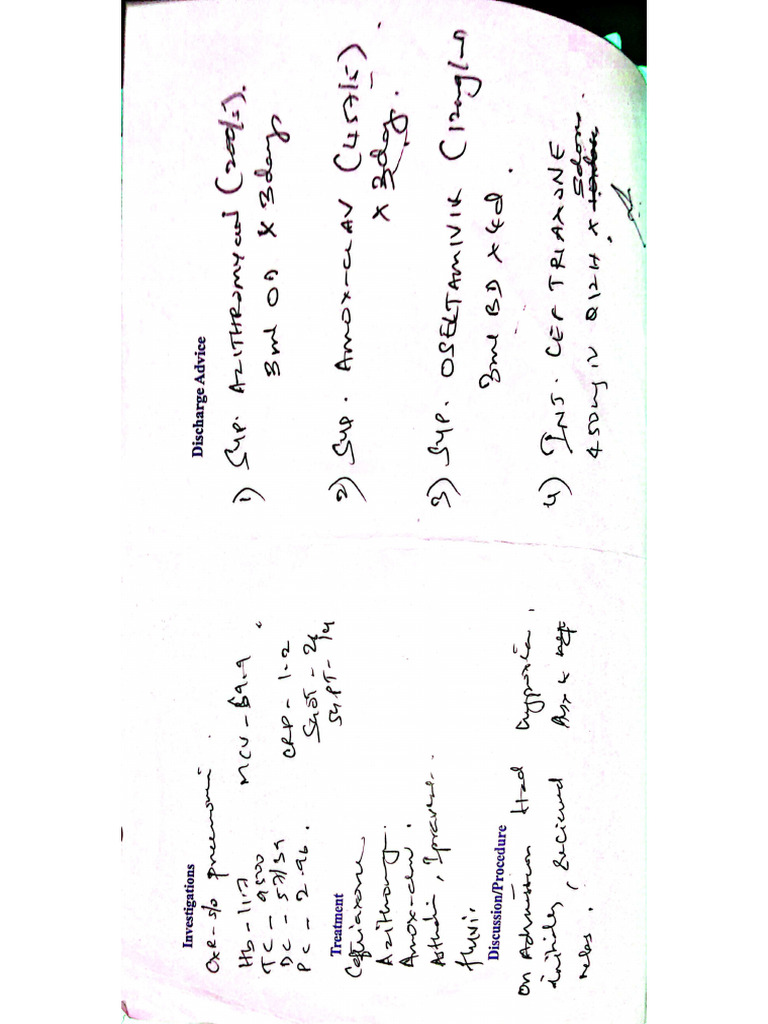 Investigations
CXR - s/o pneumonia.
Hb - 11.7 MCV - 69.9
TC - 9500
DC - 57/39 CRP - 1.2
PC - 2.96. SGOT - 24
SGPT - 14
Treatment
Ceftriaxone
Azithromy.
Amox-clav.
Asthalin, Ipravent.
fluvir.
Discussion/Procedure
On Admission Had hypoxia.
initially, received &
nebs.
Discharge Advice
1) Syp. AZITHROMYCIN (200/5).
3ml OD X 3days
2) Syp. AMOX-CLAV (457/5)
X 3day.
3) Syp. OSELTAMIVIR (12mg/ml)
3ml BD X 4d.
4) INJ. CEFTRIAXONE
450mg IV Q12H X